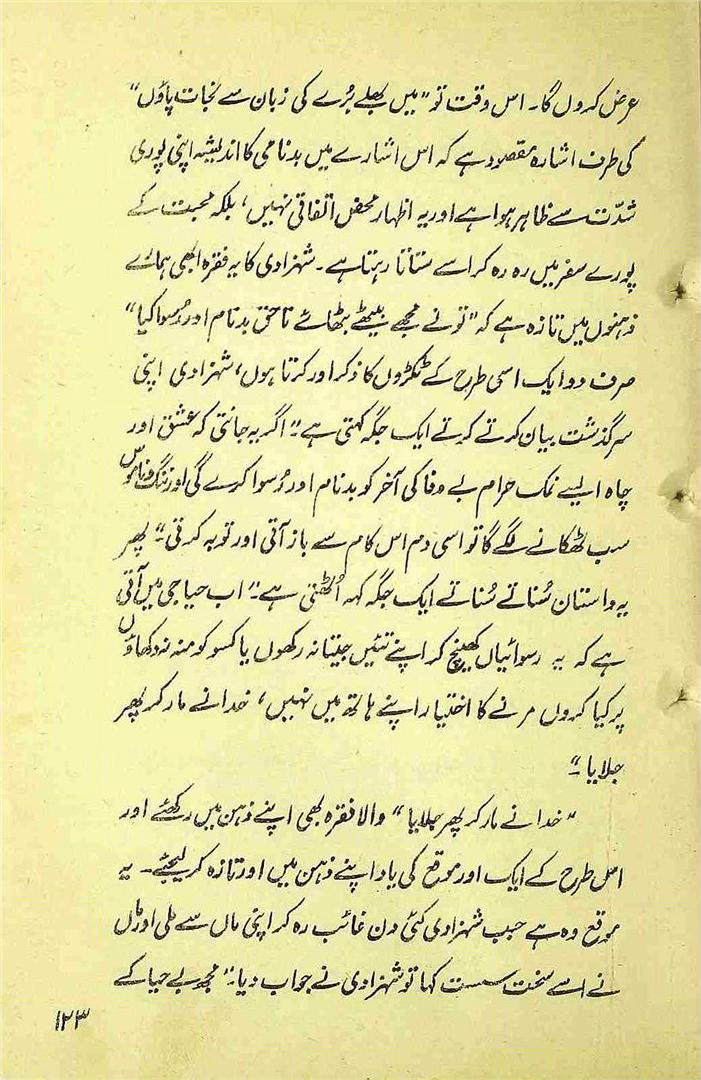 عرض کروں گا۔ اس وقت تو "میں بھلے بُرے کی زبان سے نجات پاؤں"
کی طرف اشارہ مقصود ہے کہ اس اشارے میں بدنامی کا اندیشہ اپنی پوری
شدّت سے ظاہر ہوا ہے اور یہ اظہار محض اتفاقی نہیں، بلکہ محبت کے
پورے سفر میں رہ رہ کر اسے ستاتا رہتا ہے۔ شہزادی کا یہ فقرہ ابھی ہمارے
ذہنوں میں تازہ ہے کہ "تو نے مجھے بیٹھے بٹھائے ناحق بدنام اور رُسوا کیا"
صرف دو ایک اسی طرح کے ٹکڑوں کا ذکر اور کرتا ہوں، شہزادی اپنی
سرگذشت بیان کرتے کرتے ایک جگہ کہتی ہے۔" اگر یہ جانتی کہ عشق اور
چاہ ایسے نمک حرام بے وفا کی آخر کو بدنام اور رُسوا کرے گی اور ننگ و ناموس
سب ٹھکانے لگے گا تو اسی دم اس کام سے باز آتی اور توبہ کرتی۔" پھر
یہ داستان سُناتے سُناتے ایک جگہ کہہ اُٹھتی ہے۔" اب حیا جی میں آتی
ہے کہ یہ رسوائیاں کھینچ کر اپنے تئیں جیتا نہ رکھوں یا کسو کو منہ نہ دکھاؤں
پر کیا کروں مرنے کا اختیار اپنے ہاتھ میں نہیں، خدا نے مار کر پھر
جلایا۔"
"خدا نے مار کر پھر جلایا" والا فقرہ بھی اپنے ذہن میں رکھئے اور
اس طرح کے ایک اور موقع کی یاد اپنے ذہن میں اور تازہ کر لیجئے۔ یہ
موقع وہ ہے جب شہزادی کئی دن غائب رہ کر اپنی ماں سے ملی اور ماں
نے اسے سخت سست کہا تو شہزادی نے جواب دیا۔" مجھ بے حیا کے
۱۲۳